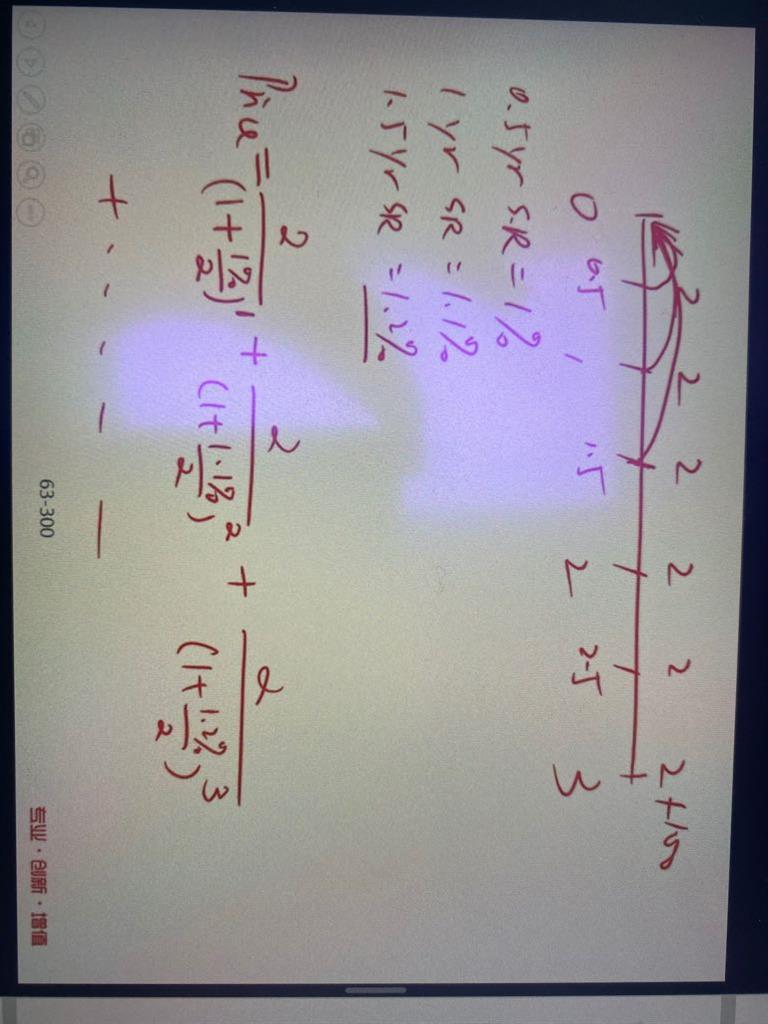 2 2 2 2 2 2+100
0 0.5 1 1.5 2 2.5 3
0.5 yr SR = 1%
1 yr SR = 1.1%
1.5 yr SR = 1.2%
Price = 2/(1+1%/2)^1 + 2/(1+1.1%/2)^2 + 2/(1+1.2%/2)^3
+ . - - — —
63-300
专业·创新·增值